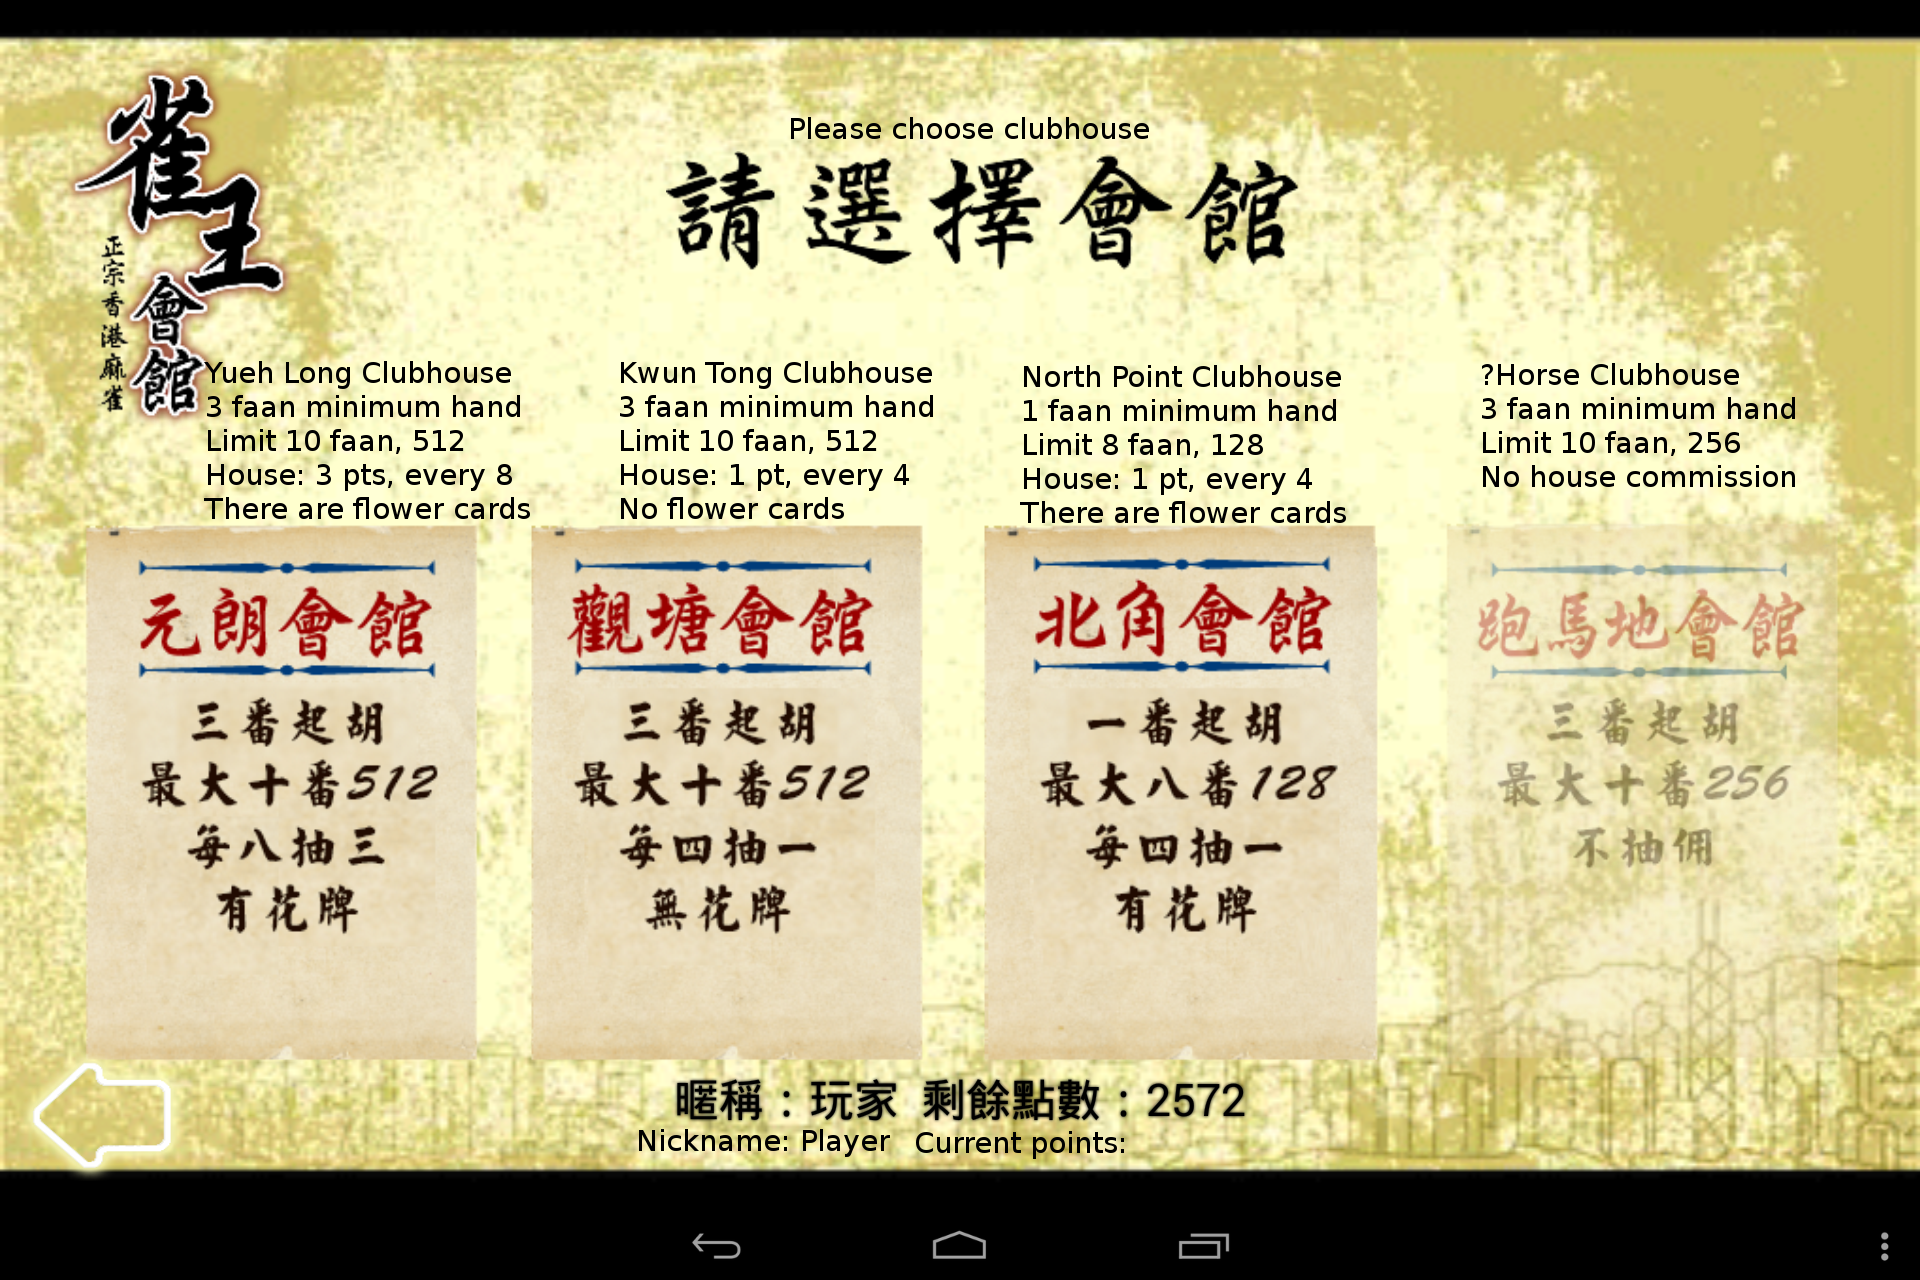 雀王
會館
正宗香港麻雀
Please choose clubhouse
請選擇會館
Yueh Long Clubhouse
3 faan minimum hand
Limit 10 faan, 512
House: 3 pts, every 8
There are flower cards
元朗會館
三番起胡
最大十番512
每八抽三
有花牌
Kwun Tong Clubhouse
3 faan minimum hand
Limit 10 faan, 512
House: 1 pt, every 4
No flower cards
觀塘會館
三番起胡
最大十番512
每四抽一
無花牌
North Point Clubhouse
1 faan minimum hand
Limit 8 faan, 128
House: 1 pt, every 4
There are flower cards
北角會館
一番起胡
最大八番128
每四抽一
有花牌
?Horse Clubhouse
3 faan minimum hand
Limit 10 faan, 256
No house commission
跑馬地會館
三番起胡
最大十番256
不抽佣
暱稱：玩家 剩餘點數：2572
Nickname: Player Current points: